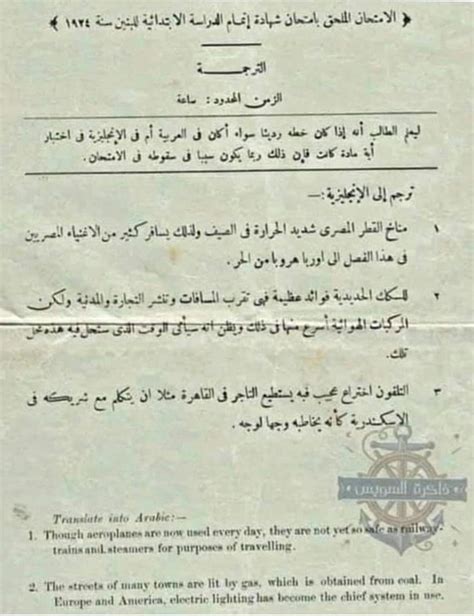 ﴿ الامتحان الملحق بامتحان شهادة إتمام الدراسة الابتدائية للبنين سنة ١٩٢٤ ﴾
الترجمة
الزمن المحدود : ساعة
ليعلم الطالب أنه إذا كان خطه رديئا سواء أكان فى العربية أم فى الإنجليزية فى اختبار
أية مادة كانت فإن ذلك ربما يكون سببا فى سقوطه فى الامتحان.
ترجم إلى الإنجليزية :—
١ مناخ القطر المصرى شديد الحرارة فى الصيف ولذلك يسافر كثير من الاغنياء المصريين
فى هذا الفصل الى اوربا هروبا من الحر.
٢ للسكك الحديدية فوائد عظيمة فهى تقرب المسافات وتنشر التجارة والمدنية ولكن
المركبات الهوائية أسرع منها فى ذلك ويظن انه سيأتى الوقت الذى ستحل فيه هذه محل
تلك.
٣ التلفون اختراع عجيب فبه يستطيع التاجر فى القاهرة مثلا ان يتكلم مع شريكه فى
الاسكندرية كأنه يخاطبه وجها لوجه.
ذاكرة السويس
Translate into Arabic:—
1. Though aeroplanes are now used every day, they are not yet so safe as railway-
trains and steamers for purposes of travelling.
2. The streets of many towns are lit by gas, which is obtained from coal. In
Europe and America, electric lighting has become the chief system in use.